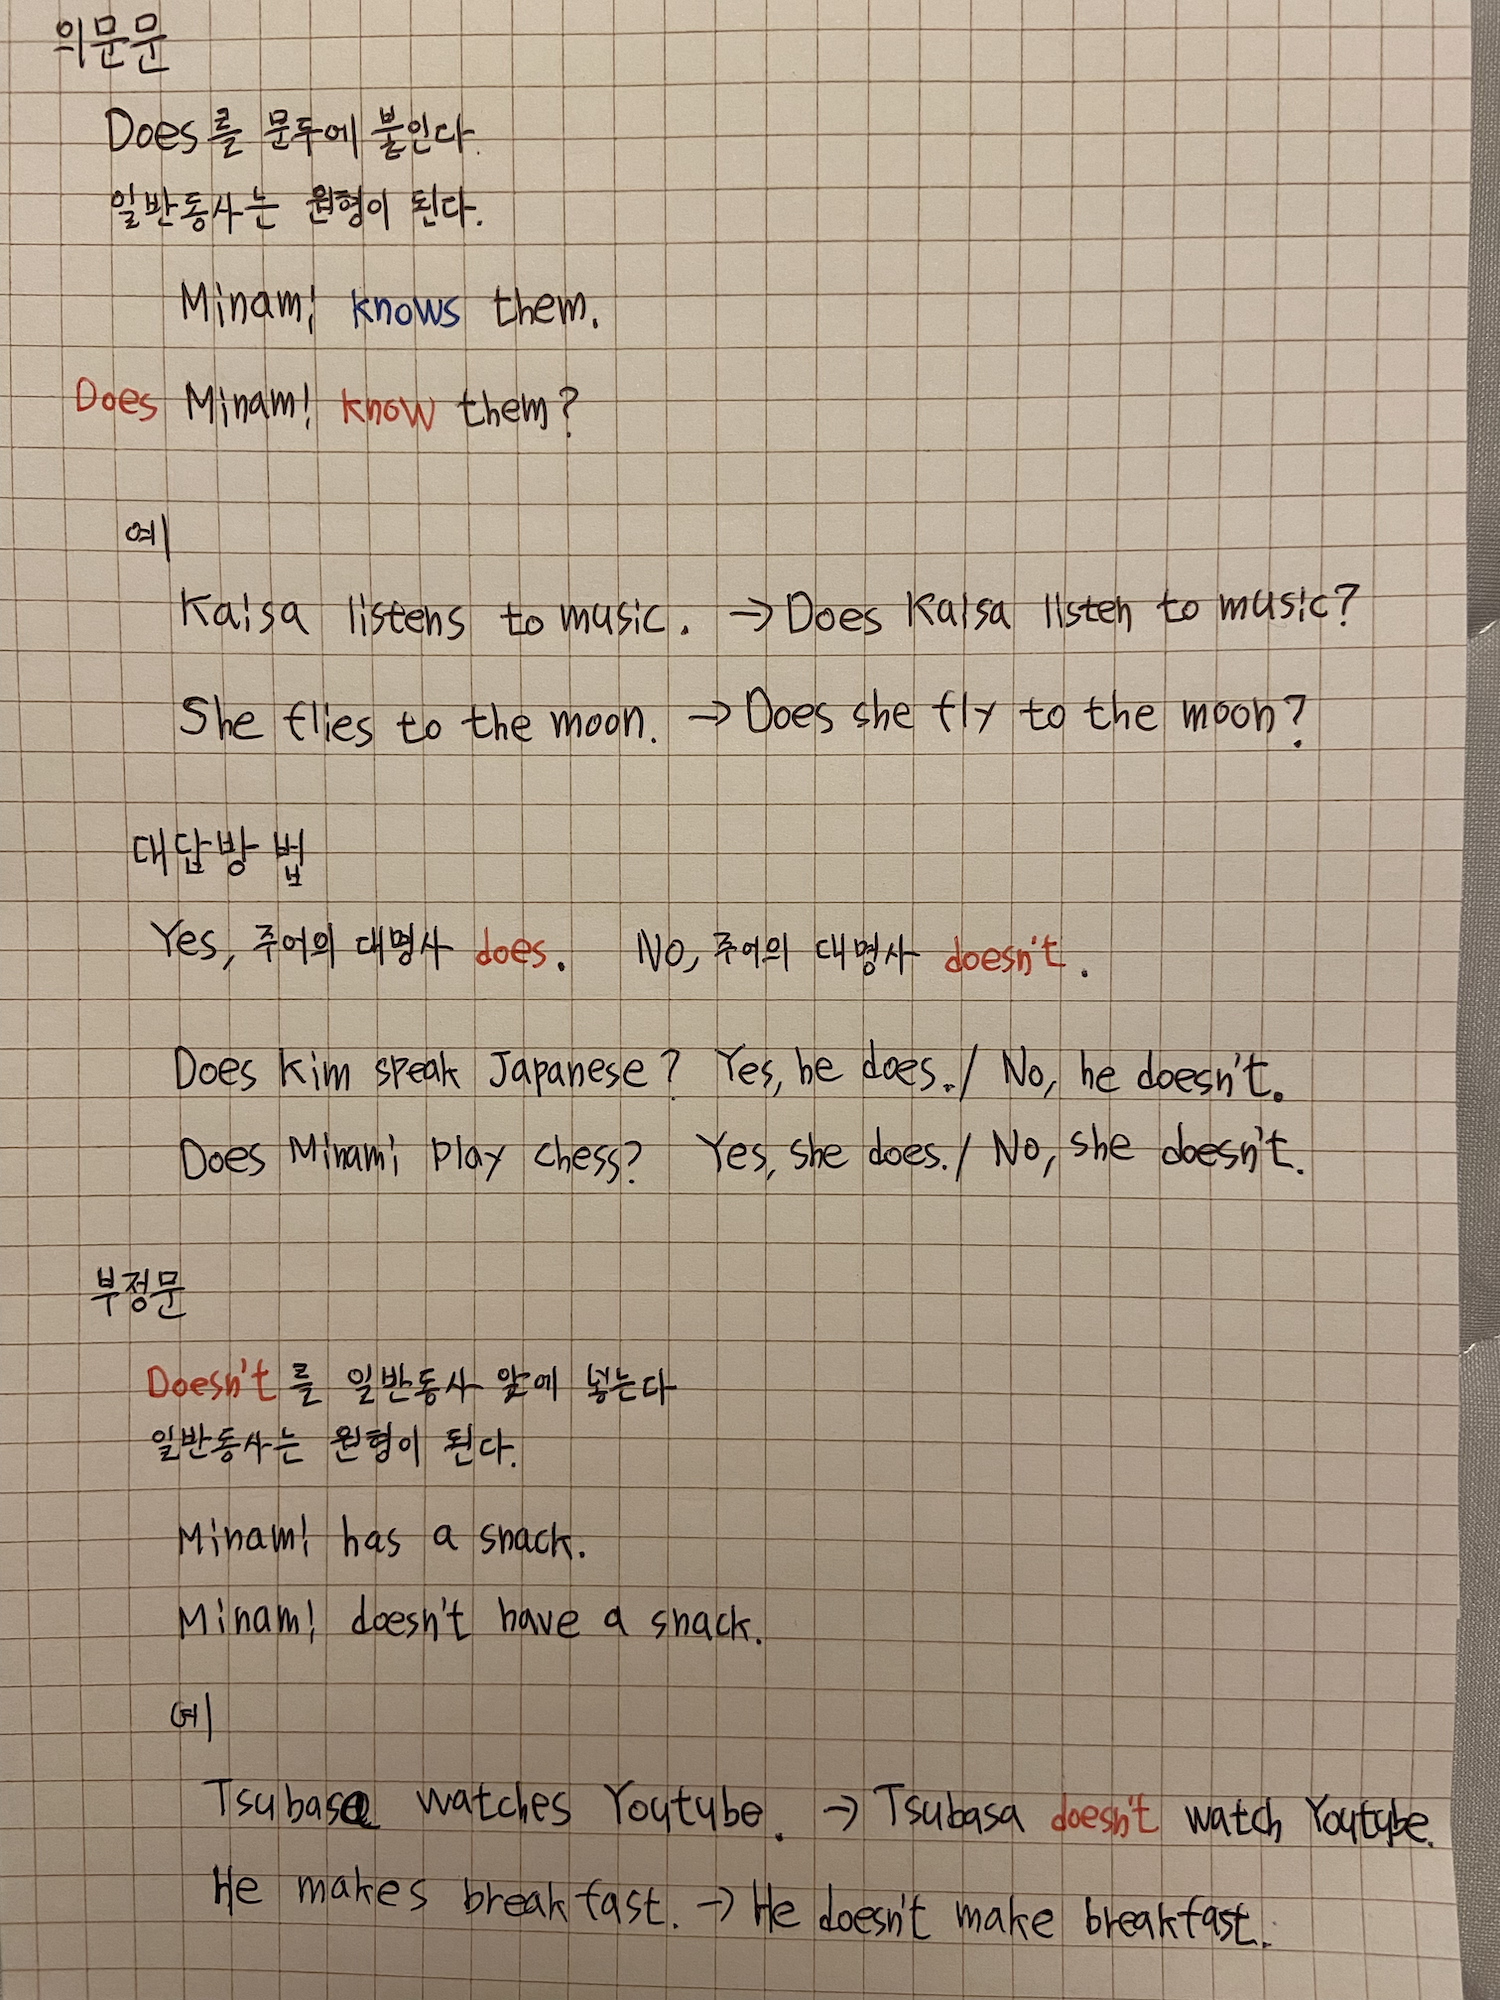 의문문
Does를 문두에 붙인다.
일반동사는 원형이 된다.
Minami knows them.
Does Minami know them?
예
Kaisa listens to music. → Does Kaisa listen to music?
She flies to the moon. → Does she fly to the moon?
대답방법
Yes, 주어의 대명사 does. No, 주어의 대명사 doesn't.
Does Kim speak Japanese? Yes, he does. / No, he doesn't.
Does Minami play chess? Yes, she does. / No, she doesn't.
부정문
Doesn't를 일반동사 앞에 넣는다
일반동사는 원형이 된다.
Minami has a snack.
Minami doesn't have a snack.
예
Tsubasa watches Youtube. → Tsubasa doesn't watch Youtube.
He makes breakfast. → He doesn't make breakfast.